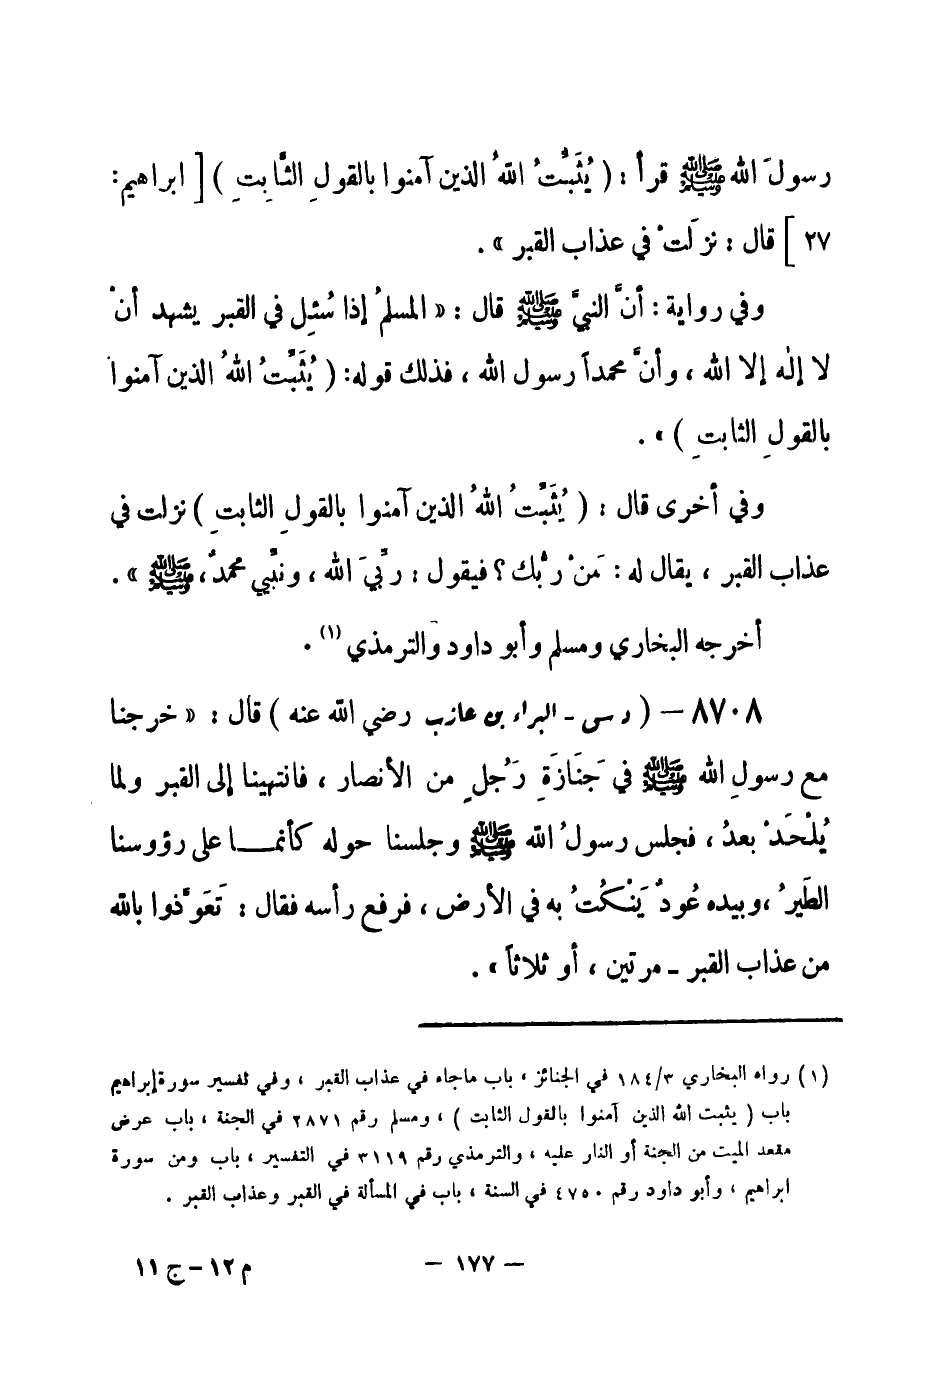 رسولَ الله ﷺ قرأ : ( يُثَبِّتُ اللهُ الذين آمنوا بالقولِ الثَّابِتِ ) [ ابراهيم:
٢٧ ] قال : نزَلتْ في عذاب القبر » .
وفي رواية : أنَّ النبيَّ ﷺ قال : « المسلمُ إذا سُئِل في القبر يشهد أنْ
لا إلٰه إلا الله ، وأنَّ محمداً رسول الله ، فذلك قوله: ( يُثَبِّتُ اللهُ الذين آمنوا
بالقولِ الثابتِ ) » .
وفي أخرى قال : ( يُثَبِّتُ اللهُ الذين آمنوا بالقولِ الثابتِ ) نزلت في
عذاب القبر ، يقال له : مَنْ ربُّك ؟ فيقول : ربِّيَ الله ، ونبِّيي محمدٌ، ﷺ » .
أخرجه البخاري ومسلم وأبو داود والترمذي (١) .
٨٧٠٨ – ( د س - البراء بن عازب رضي الله عنه ) قال : « خرجنا
مع رسولِ الله ﷺ في جَنَازَةِ رَجُلٍ من الأنصار ، فانتهينا إلى القبر ولما
يُلْحَدْ بعدُ ، فجلس رسولُ الله ﷺ وجلسنا حوله كأنمـــا على رؤوسنا
الطَيرُ ، وبيده عُودٌ يَنْكُتُ به في الأرض ، فرفع رأسه فقال : تَعَوَّذوا بالله
من عذاب القبر - مرتين ، أو ثلاثاً » .
(١) رواه البخاري ١٨٤/٣ في الجنائز ، باب ماجاء في عذاب القبر ، وفي تفسير سورة إبراهيم
باب ( يثبت الله الذين آمنوا بالقول الثابت ) ، ومسلم رقم ٢٨٧١ في الجنة ، باب عرض
مقعد الميت من الجنة أو النار عليه ، والترمذي رقم ٣١١٩ في التفسير ، باب ومن سورة
ابراهيم ، وأبو داود رقم ٤٧٥٠ في السنة ، باب في المسألة في القبر وعذاب القبر .
– ١٧٧ –
م ١٢ – ج ١١